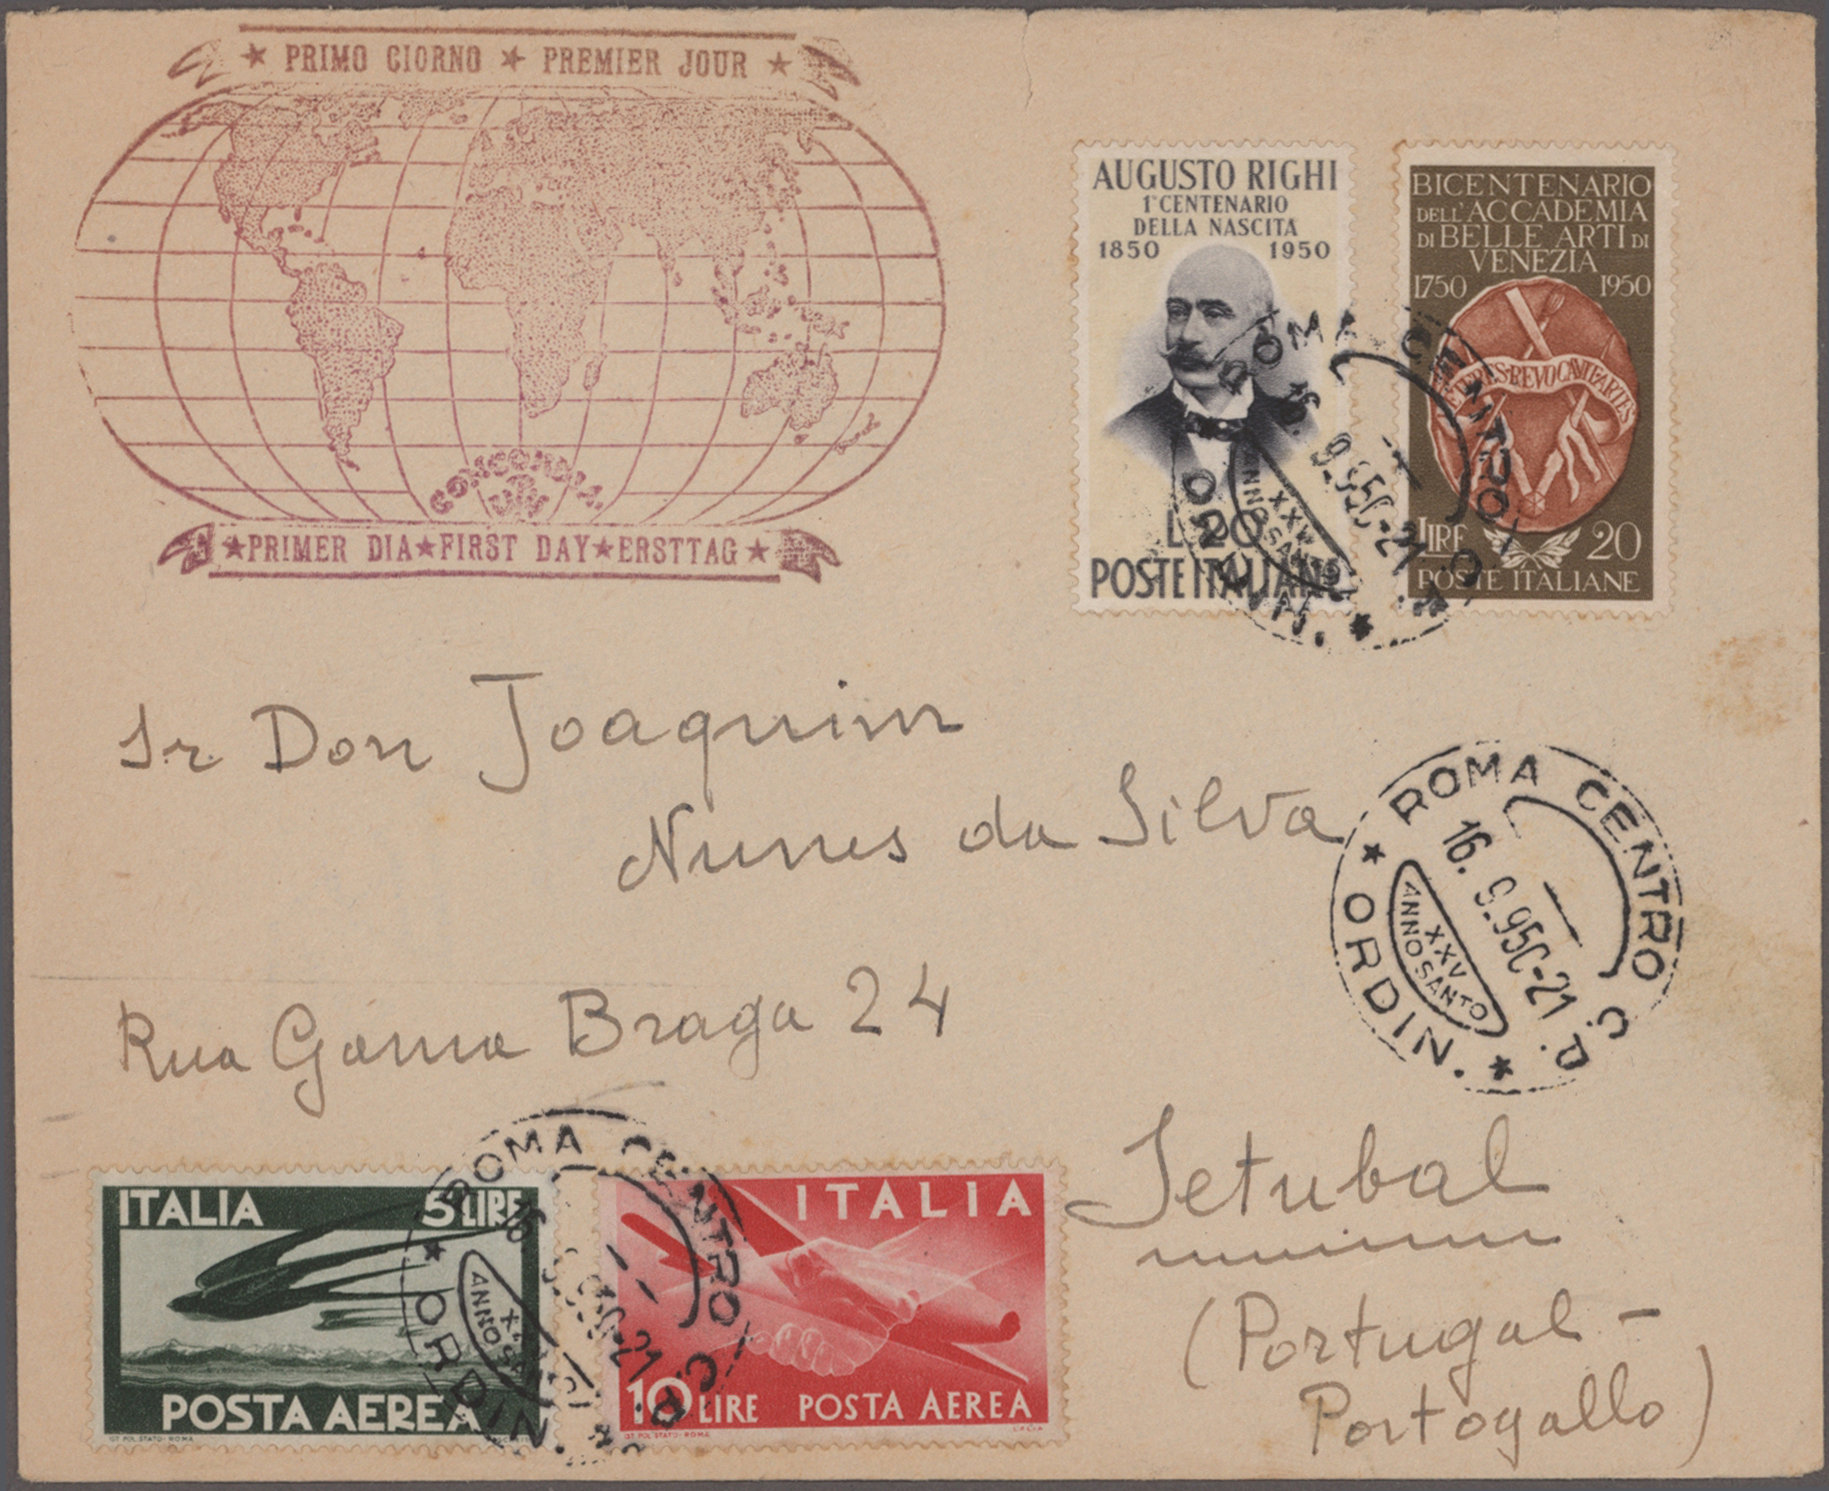 ★ PRIMO GIORNO ★ PREMIER JOUR ★
CONCORDIA
★PRIMER DIA★FIRST DAY★ERSTTAG★
AUGUSTO RIGHI
1º CENTENARIO
DELLA NASCITA
1850 1950
L. 20
POSTE ITALIANE
BICENTENARIO
DELL'ACCADEMIA
DI BELLE ARTI DI
VENEZIA
1750 1950
VETERES·REVOCAVIT·ARTES
LIRE 20
POSTE ITALIANE
ROMA CENTRO C.P.
9.950-21
XXV
ANNO SANTO
ORDIN.
Sr Don Joaquim
Nunes da Silva
ROMA CENTRO C.P.
16. 9.950-21
XXV
ANNO SANTO
★ ORDIN. ★
Rua Gama Braga 24
Setubal
(Portugal -
Portogallo)
ITALIA 5 LIRE
POSTA AEREA
IST. POL. STATO - ROMA
ROMA CENTRO C.P.
16
ANNO SANTO
★ ORDIN. ★
ITALIA
10 LIRE POSTA AEREA
IST. POL. STATO - ROMA